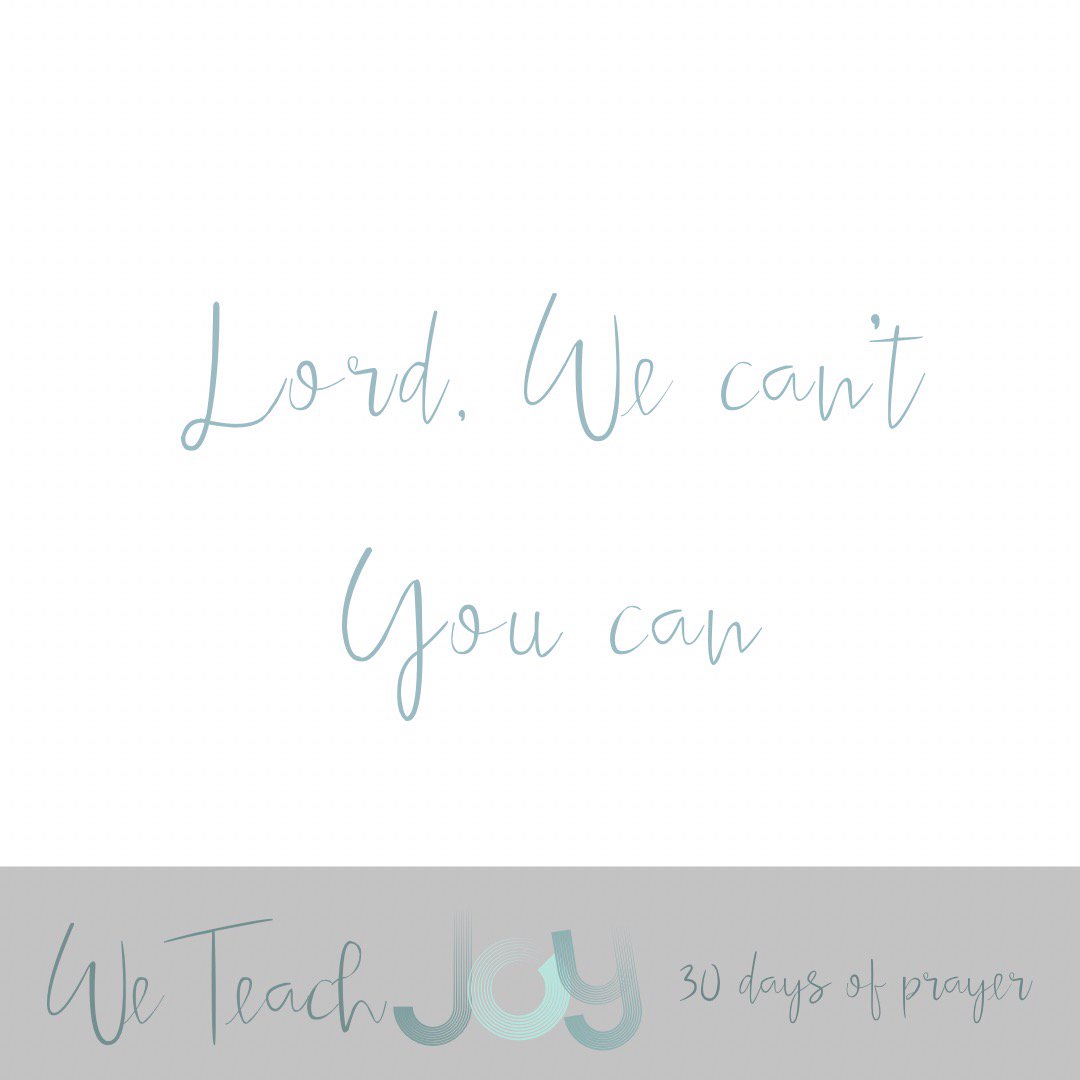 Lord, We can't
You can
We Teach JOY 30 days of prayer